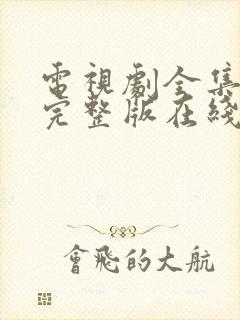 電視劇全集
完整版在綫
會飛的大航